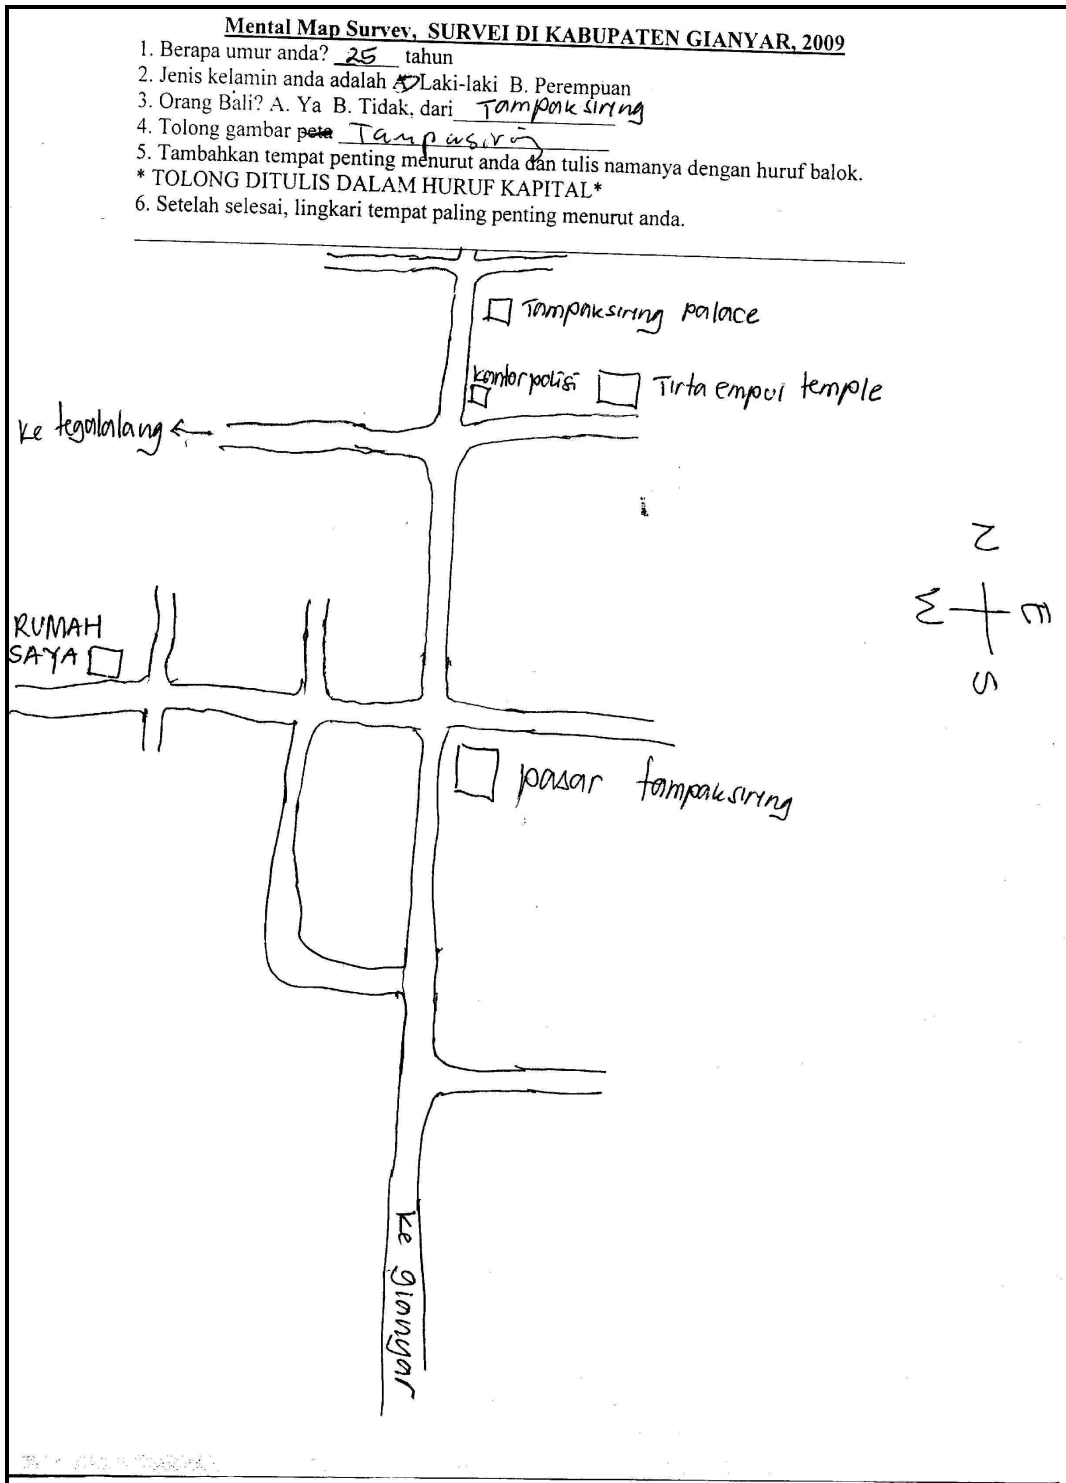 Mental Map Survey, SURVEI DI KABUPATEN GIANYAR, 2009
1. Berapa umur anda? 25 tahun
2. Jenis kelamin anda adalah A Laki-laki B. Perempuan
3. Orang Bali? A. Ya B. Tidak, dari Tampak siring
4. Tolong gambar peta Tampasiring
5. Tambahkan tempat penting menurut anda dan tulis namanya dengan huruf balok.
* TOLONG DITULIS DALAM HURUF KAPITAL*
6. Setelah selesai, lingkari tempat paling penting menurut anda.
Tampaksiring palace
kantor polisi
Tirta empul temple
ke tegalalang
N
W E
S
RUMAH
SAYA
pasar tampaksiring
ke gianyar